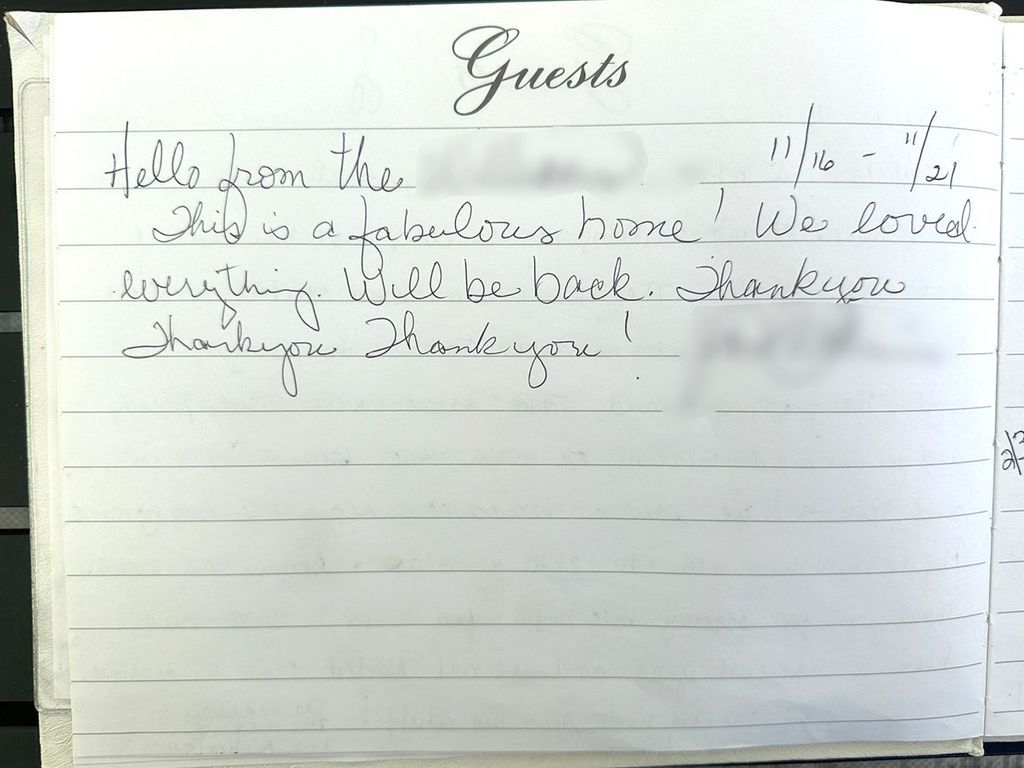 Guests
Hello from the 11/16 - 11/21
This is a fabulous home! We loved
everything. Will be back. Thankyou
Thankyou Thankyou!
2/2